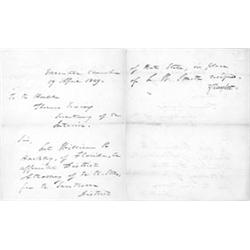 Executive Chamber
19 April 1849.
To the Hon
Thomas Ewing
Secretary of the
Interior.
Sir,
Let William R.
Hackley, of Florida be
appointed District
Attorney of the U. States
for the Southern
District
of that State, in place
of L. W. Smith resigned.
Z. Taylor